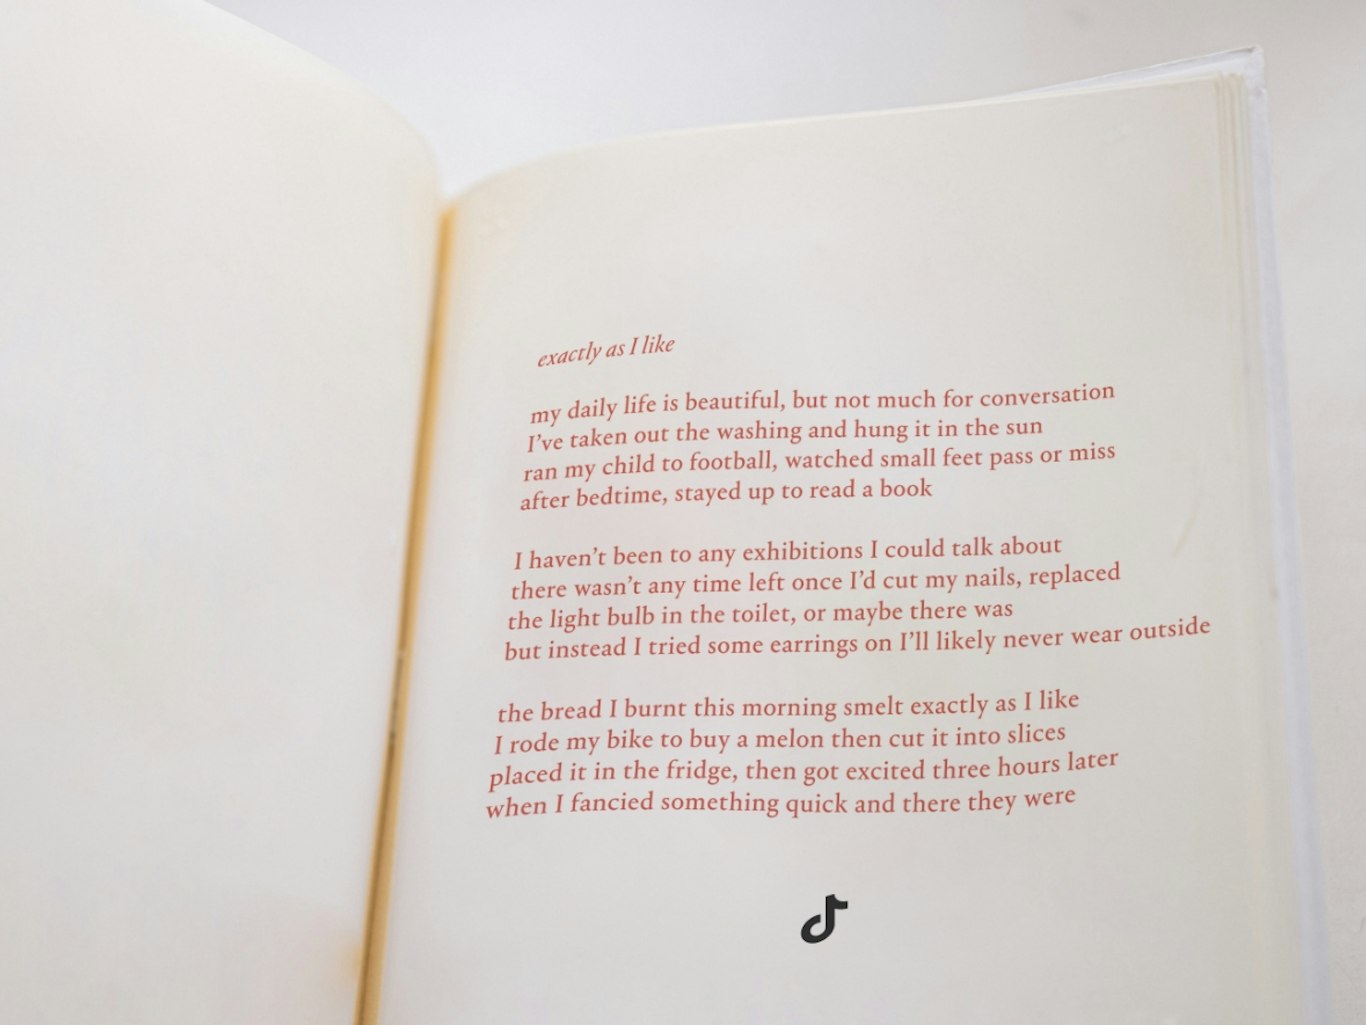 exactly as I like
my daily life is beautiful, but not much for conversation
I’ve taken out the washing and hung it in the sun
ran my child to football, watched small feet pass or miss
after bedtime, stayed up to read a book
I haven’t been to any exhibitions I could talk about
there wasn’t any time left once I’d cut my nails, replaced
the light bulb in the toilet, or maybe there was
but instead I tried some earrings on I’ll likely never wear outside
the bread I burnt this morning smelt exactly as I like
I rode my bike to buy a melon then cut it into slices
placed it in the fridge, then got excited three hours later
when I fancied something quick and there they were